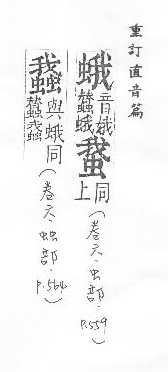 重訂直音篇
蛾 音娥蠶蛾 䖸 同上(卷六·虫部·P.559)
與蛾同(卷六·䖵部·P.564)